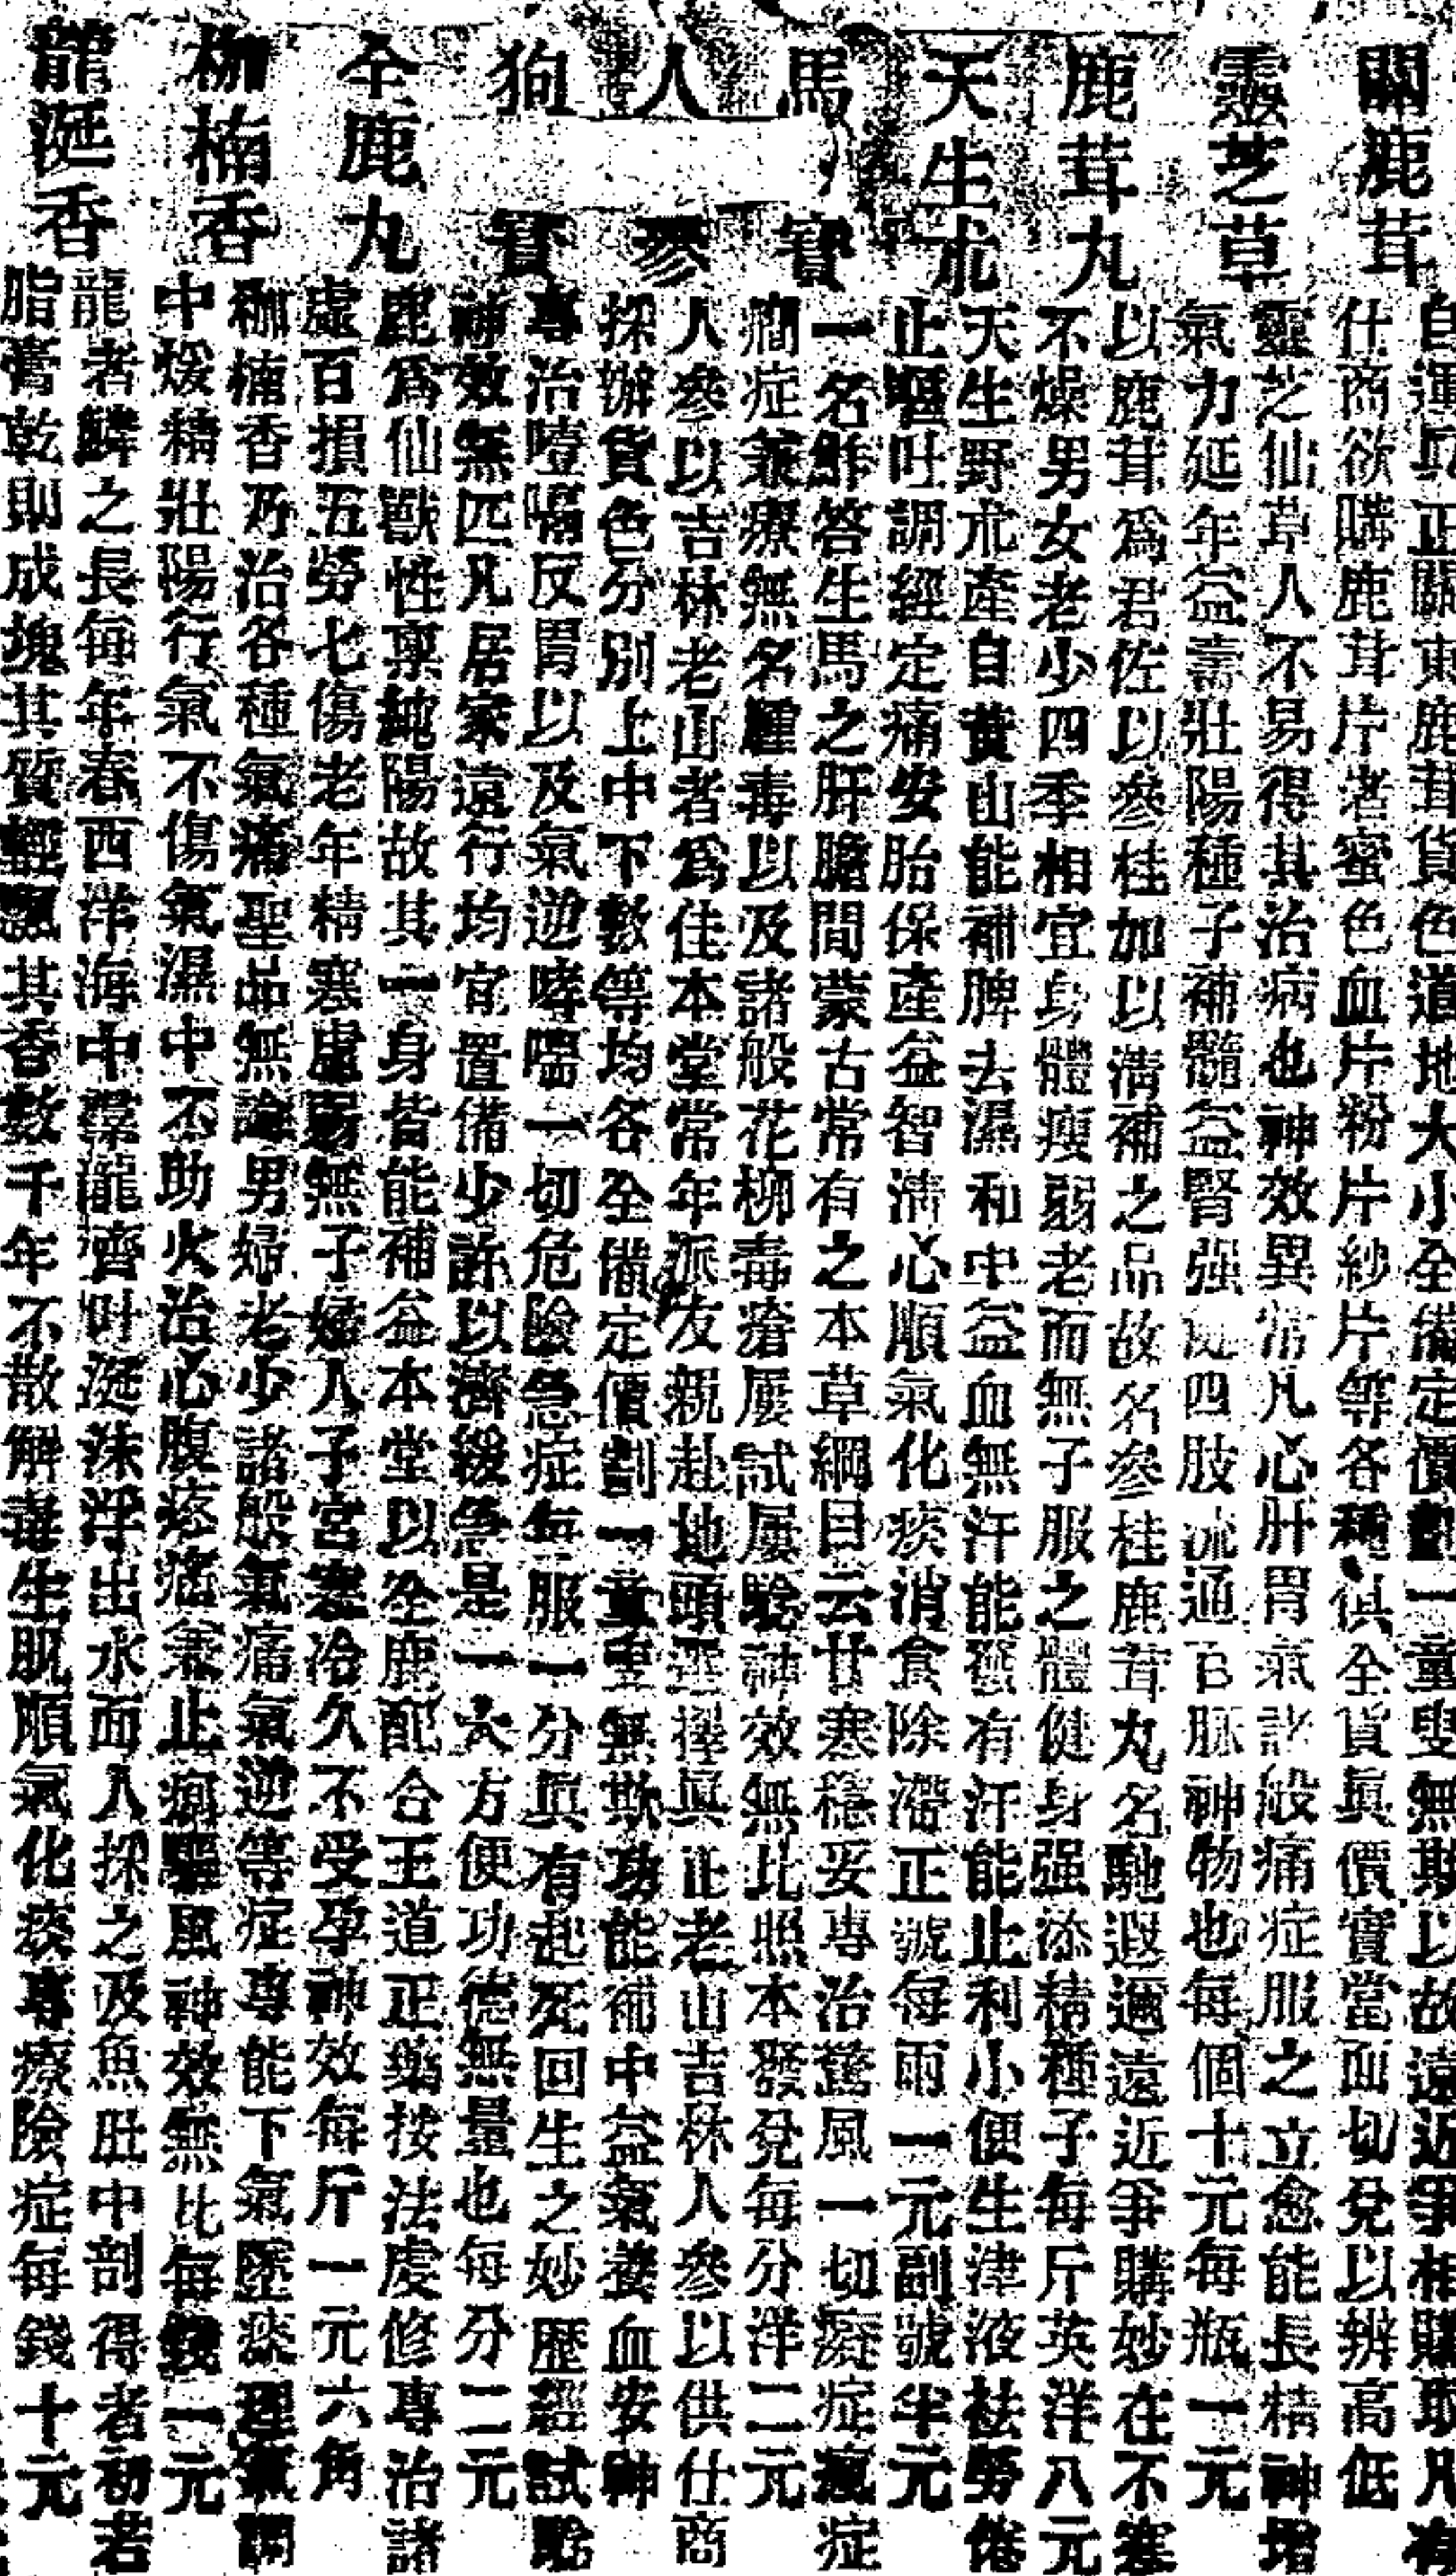 關鹿茸
自運正關東鹿茸貨色道地大小全備定價劃一童叟無欺以故遠近爭相購取凡有
仕商欲購鹿茸片者蜜色血片粉片紗片等各種俱全貨真價實當面切兌以辨高低
靈芝草
靈芝仙草人不易得其治病也神效異常凡心肝胃氣諸般痛症服之立愈能長精神增
氣力延年益壽壯陽種子補髓益腎强四肢流通百脉神物也每個十元每瓶一元
鹿茸丸
以鹿茸爲君佐以參桂加以清補之品故名參桂鹿茸丸名馳遐邇遠近爭購妙在不寒
不燥男女老少四季相宜身體瘦弱老而無子服之體健身强添精種子每斤英洋八元
天生朮
天生野朮產自黃山能補脾去濕和中益血無汗能發有汗能止利小便生津液祛勞倦
止嘔吐調經定痛安胎保產益智清心順氣化痰消食除滯正號每兩一元副號半元
馬寶
一名鮓答生馬之肝膽間蒙古常有之本草綱目云甘寒穩妥專治驚風一切癡症瘋症
癎症兼療無名腫毒以及諸般花柳毒瘡屢試屢驗神效無比照本發兌每分洋二元
人參
人參以吉林老山者爲佳本堂常年派友親赴地頭選擇真正老山吉林人參以供仕商
採辦貨色分別上中下數等均各全備定價劃一童叟無欺功能補中益氣養血安神
狗寶
專治噎嗝反胃以及氣逆哮喘一切危險急症每服一分真有起死回生之妙歷經試驗
神效無匹凡居家遠行均宜置備少許以濟緩急是一大方便功德無量也每分二元
全鹿丸
鹿爲仙獸性禀純陽故其一身皆能補益本堂以全鹿配合王道正藥按法虔修專治諸
虛百損五勞七傷老年精寒虛弱無子婦人子宮寒冷久不受孕神效每斤一元六角
枷楠香
枷楠香乃治各種氣痛聖品無論男婦老少諸般氣痛氣逆等症專能下氣墜痰理氣調
中煖精壯陽行氣不傷氣濕中不助火治心腹疼痛兼止瀉驅風神效無比每錢一元
龍涎香
龍者鱗之長每年春西洋海中羣龍齊吐涎沫浮出水面人採之及魚肚中剖得者初若
脂膏乾則成塊其質輕飄其香數千年不散解毒生肌順氣化痰專療險症每錢十元